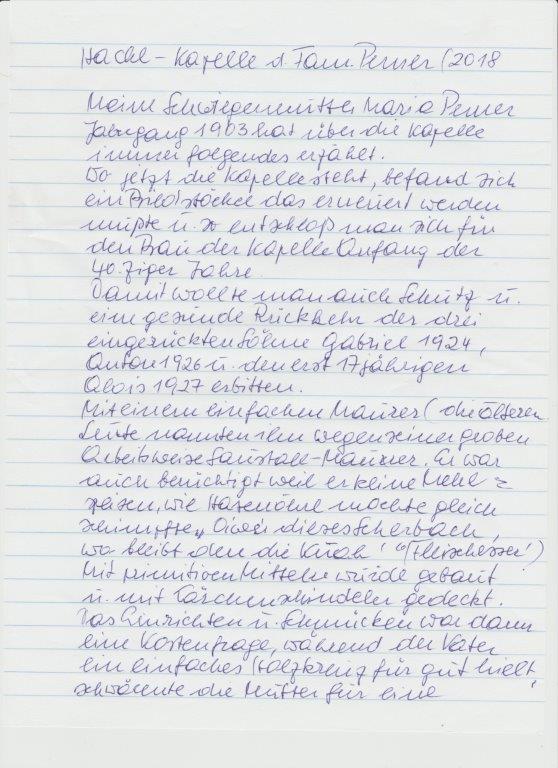 Hackl-Kapelle d. Fam. Perner (2018
Meine Schwiegermutter Maria Perner
Jahrgang 1903 hat über die Kapelle
immer folgendes erzählt.
Wo jetzt die Kapelle steht, befand sich
ein Bildstöckel das erneuert werden
mußte u. so entschloß man sich für
den Bau der Kapelle Anfang der
40.ziger Jahre.
Damit wollte man auch Schutz u.
eine gesunde Rückkehr der drei
eingerückten Söhne Gabriel 1924,
Anton 1926 u. den erst 17jährigen
Alois 1927 erbitten.
Mit einem einfachen Maurer (die älteren
Leute nannten ihn wegen seiner groben
Arbeitsweise Saustall-Maurer. Er war
auch berüchtigt weil er keine Mehl=
speisen, wie mochte gleich
schimpfte „ dieses
wo bleibt den die "(
Mit primitiven Mitteln wurde gebaut
u. mit Lärchenschindeln gedeckt.
Das Einrichten u. Schmücken war dann
eine Kostenfrage, während der Vater
ein einfaches Holzkreuz für gut hielt,
schwärmte die Mutter für eine